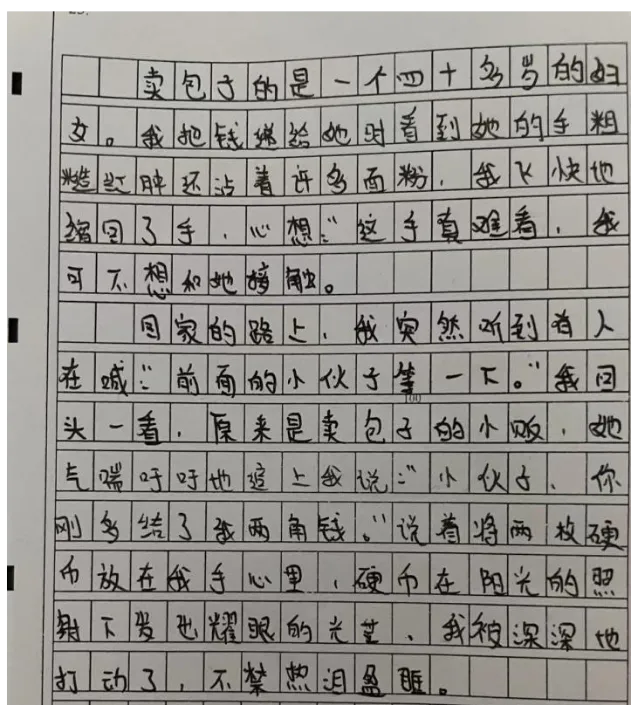 卖包子的是一个四十多岁的妇
女。我把钱递给她时看到她的手粗
糙红肿还沾着许多面粉，我飞快地
缩回了手，心想：“这手真难看，我
可不想和她接触。
回家的路上，我突然听到有人
在喊：“前面的小伙子等一下。”我回
头一看，原来是卖包子的小贩，她
气喘吁吁地追上我说：“小伙子，你
刚多结了我两角钱。”说着将两枚硬
币放在我手心里，硬币在阳光的照
射下发出耀眼的光芒，我被深深地
打动了，不禁热泪盈眶。
100